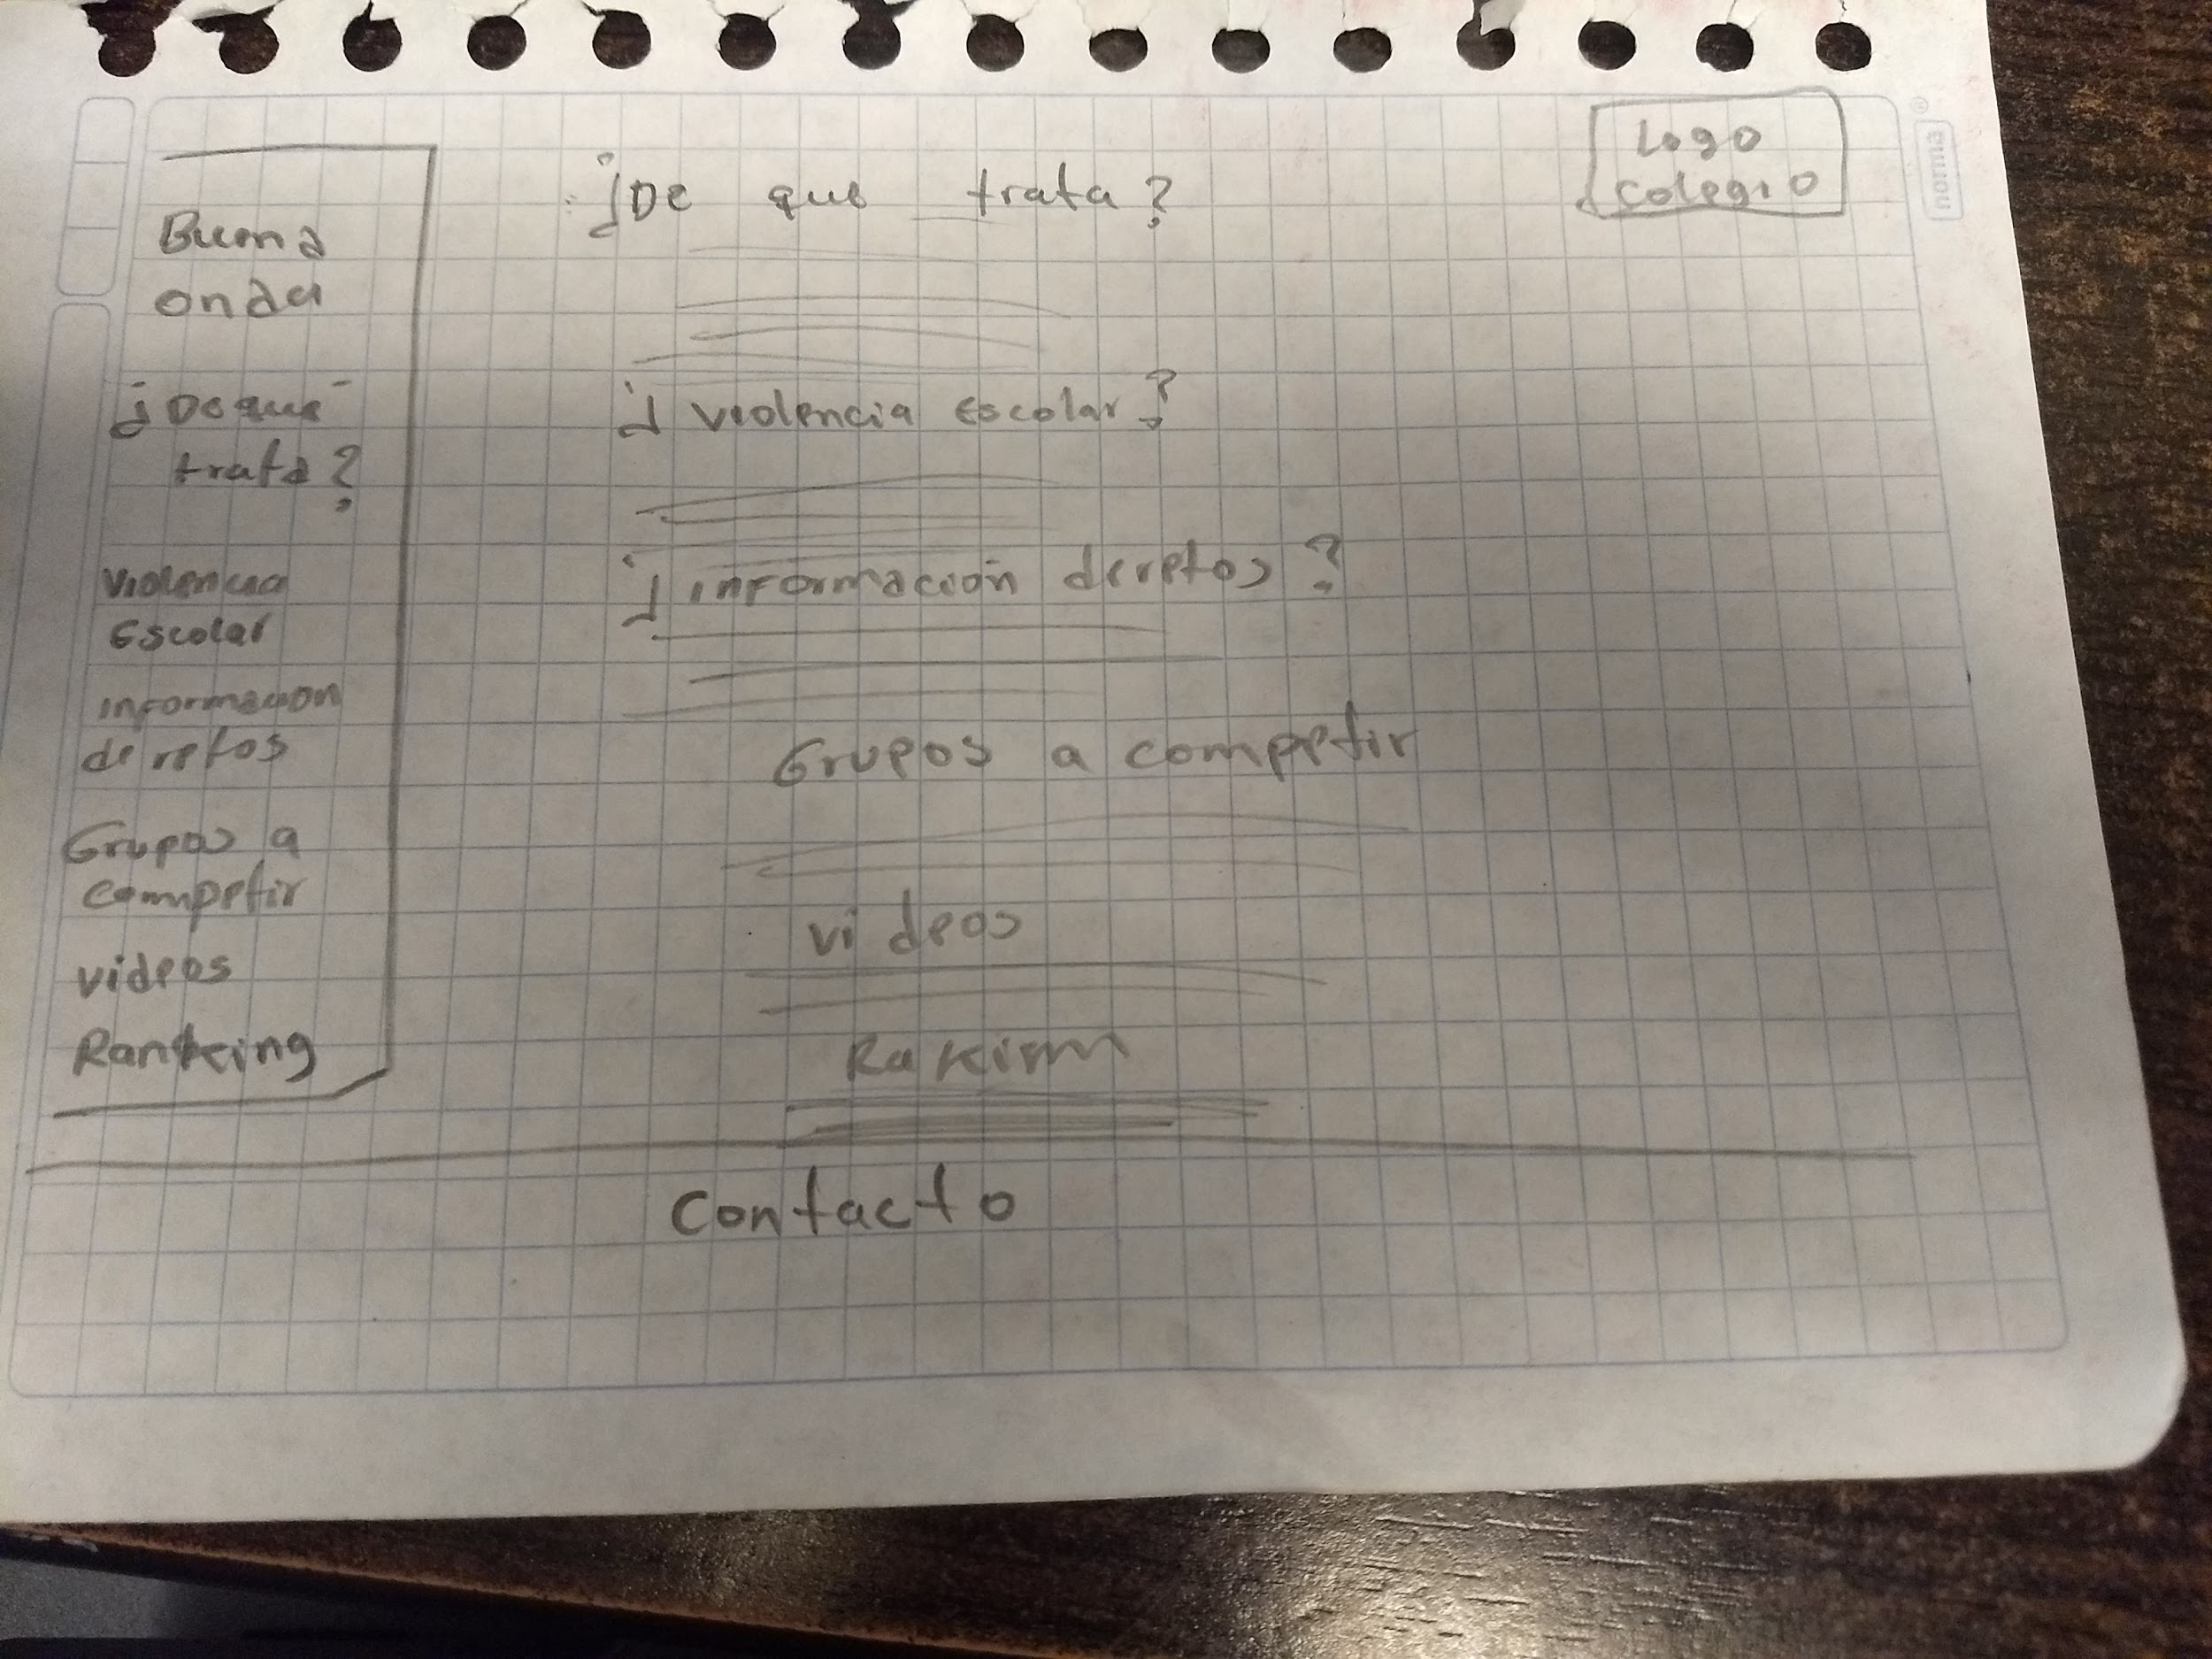 Buena
onda
¿De que
trata?
Violencia
Escolar
informacion
de retos
Grupos a
competir
videos
Ranking
¿De que trata?
¿violencia escolar?
¿información de retos?
Grupos a competir
videos
Rakim
Contacto
Logo
colegio
norma